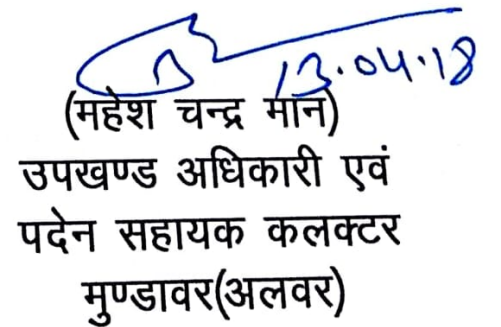 13.04.18
(महेश चन्द्र मान)
उपखण्ड अधिकारी एवं
पदेन सहायक कलक्टर
मुण्डावर(अलवर)